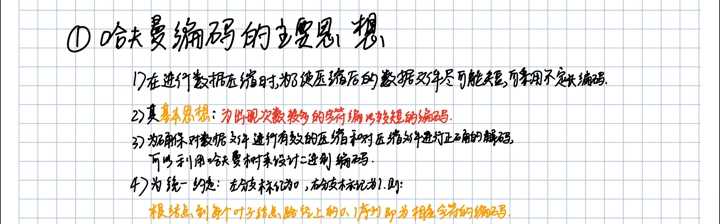 ① 哈夫曼编码的主要思想
1)在进行数据压缩时,为了使压缩后的数据文件尽可能短,可采用不定长编码.
2)其基本思想:为出现次数较多的字符编以较短的编码.
3)为确保对数据文件进行有效的压缩和对压缩文件进行正确的解码,
可以利用哈夫曼树来设计二进制编码.
4)为统一约定:左分支标记为0,右分支标记为1.则:
根结点到每个叶子结点路径上的0、1序列即为相应字符的编码.